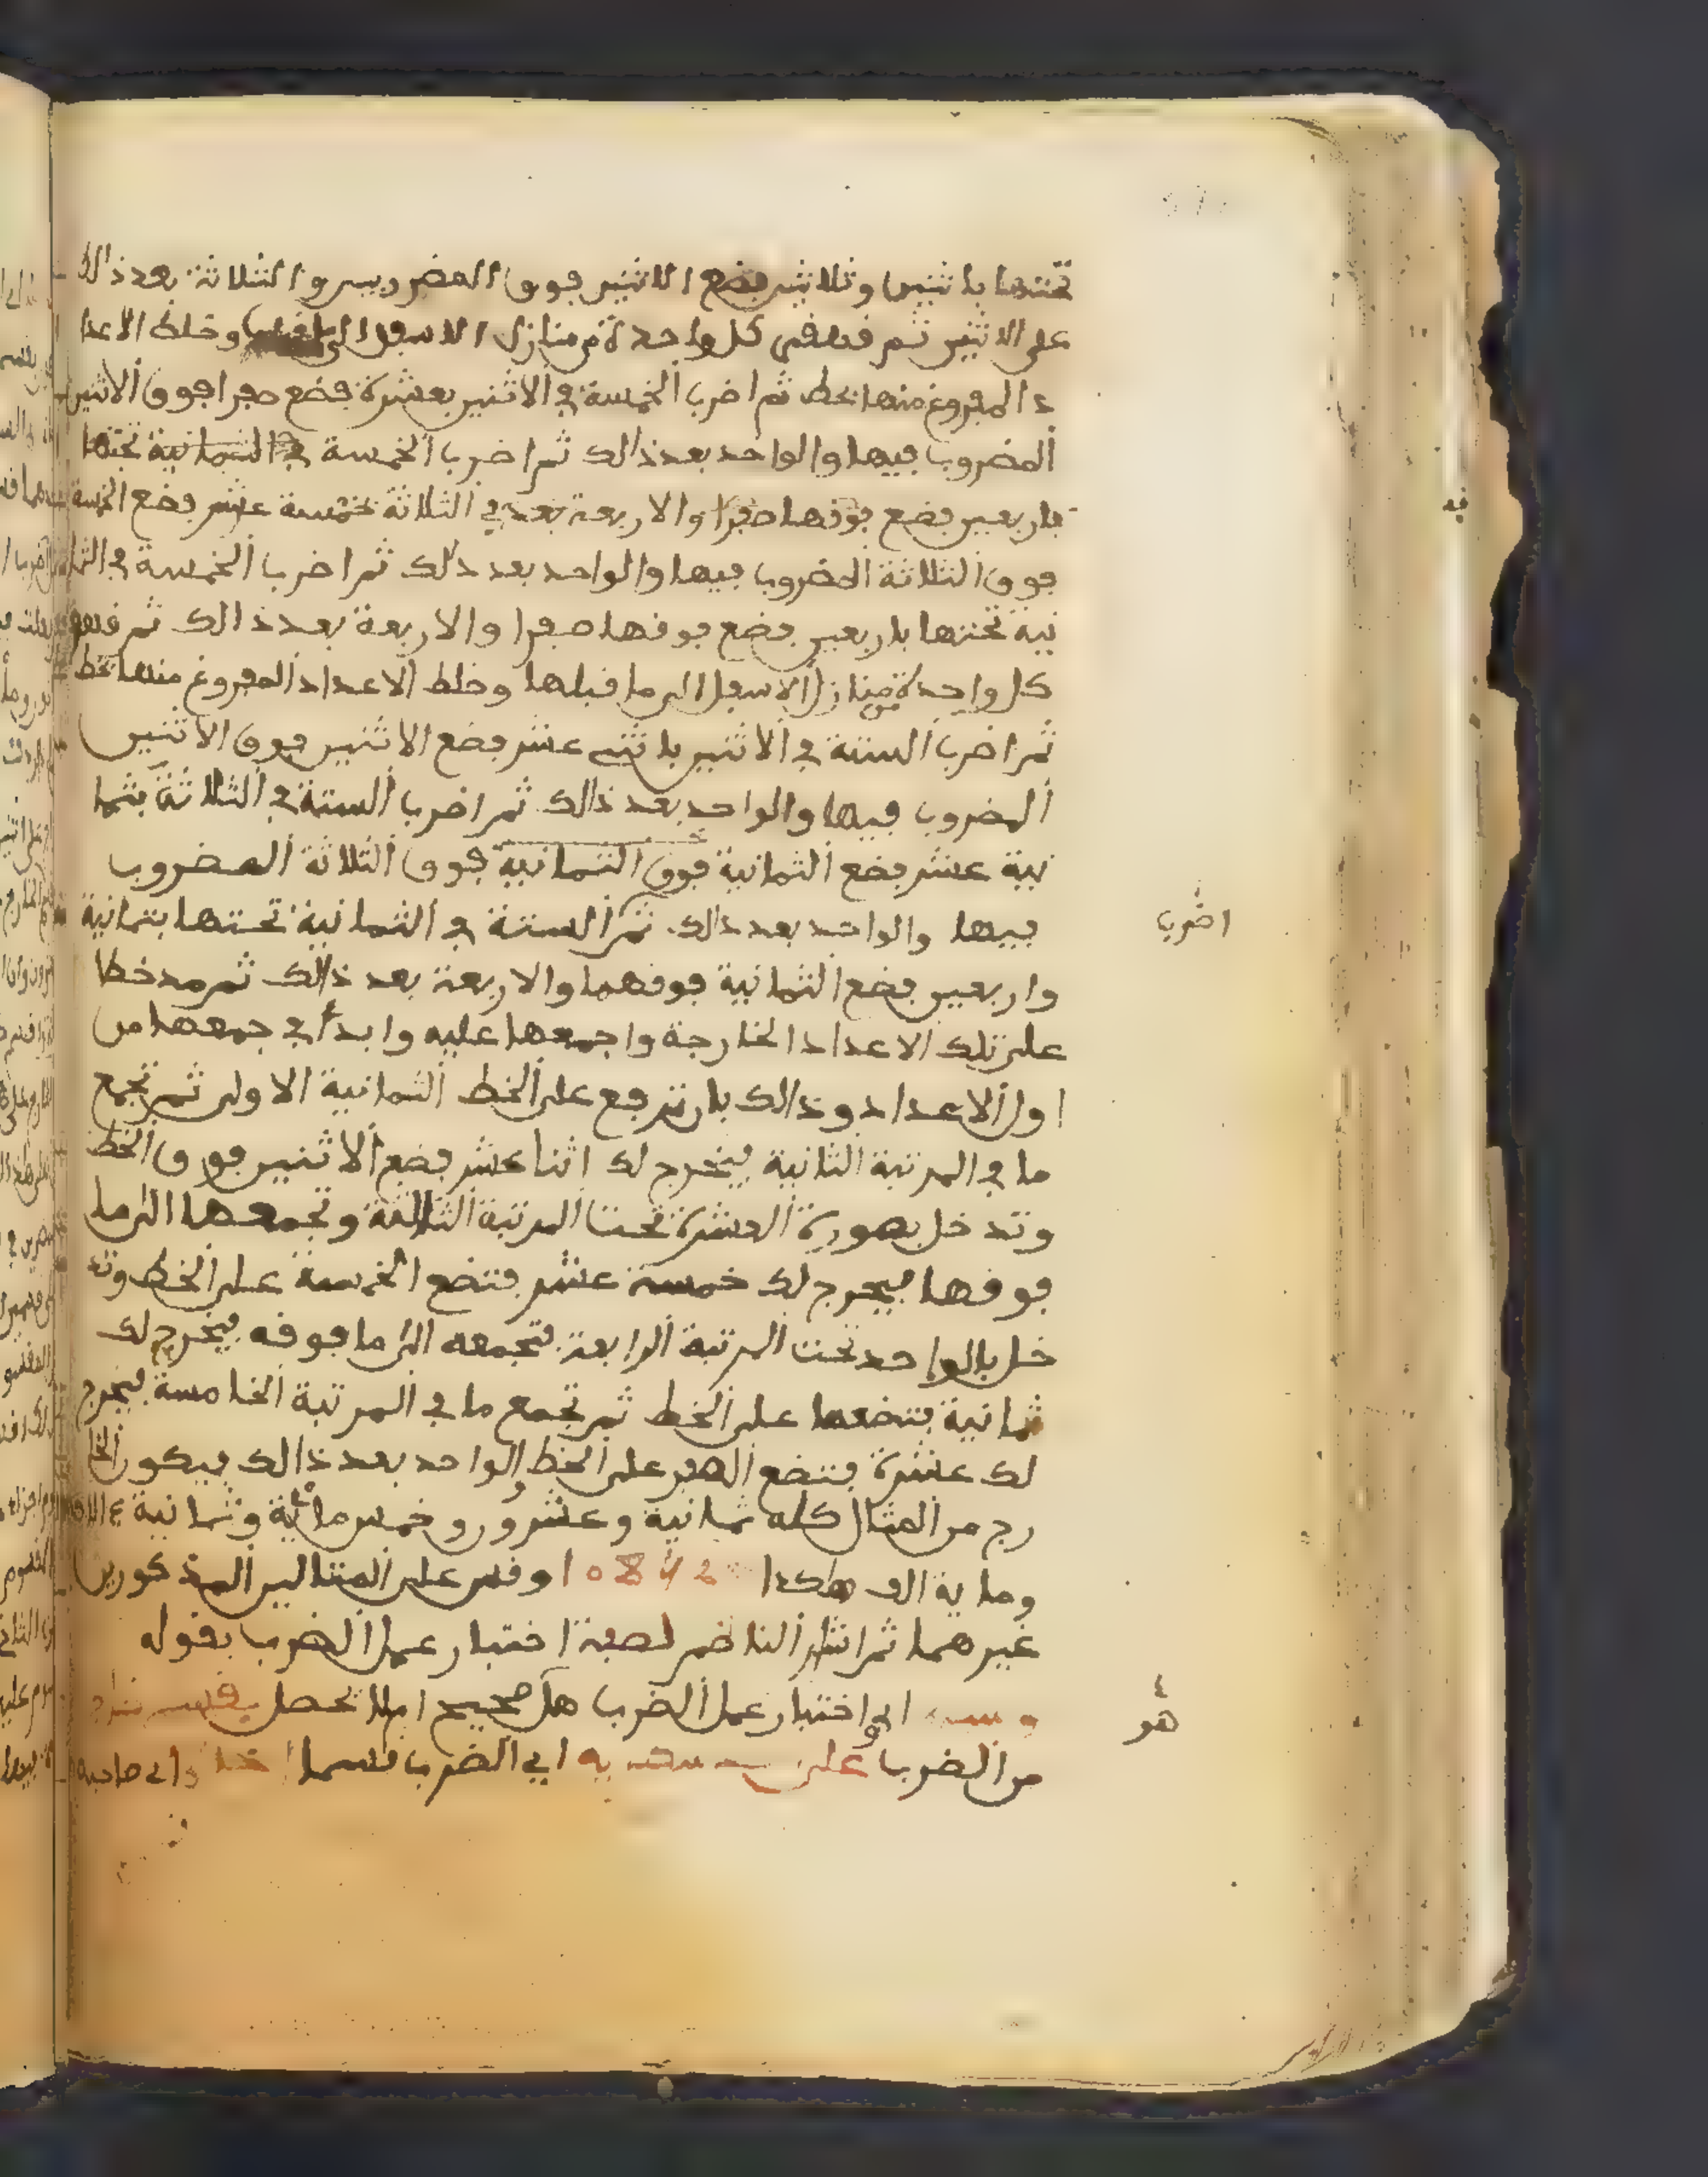 تحتها باثنين وثلاثين فضع الاثنين فوق المضروبين والثلاثة بعد ذالك
على الاثنين ثم قهقر كل واحدة من منازل الاسفل الى وخلط الاعدا
د المفروغ منها بخط ثم اضرب الخمسة في الاثنين بعشرة فضع صفرا فوق الاثنين
المضروب فيها والواحد بعد ذالك ثم اضرب الخمسة في الثمانية تحتها
باربعين فضع فوقها صفرا والاربعة بعد في الثلاثة بخمسة عشر فضع الخمسة
فوق الثلاثة المضروب فيها والواحد بعد ذلك ثم اضرب الخمسة في الثما
نية تحتها باربعين فضع فوقها صفرا والاربعة بعد ذالك ثم قهقر
كل واحدة من منازل الاسفل الى ما قبلها وخلط الاعداد المفروغ منها بخط
ثم اضرب الستة في الاثنين باثنى عشر فضع الاثنين فوق الاثنين
المضروب فيها والواحد بعد ذالك ثم اضرب الستة في الثلاثة بثما
نية عشر فضع الثمانية فوق الثمانية فوق الثلاثة المضروب
فيها والواحد بعد ذالك ثم الستة في الثمانية تحتها بثمانية
اضرب
واربعين فضع الثمانية فوقهما والاربعة بعد ذالك ثم مد خطا
على تلك الاعداد الخارجة واجمعها عليه وابدأ في جمعها من
اول الاعداد وذالك بان ترجع على الخط الثمانية الاولى ثم تجمع
ما في المرتبة الثانية فيخرج لك اثنا عشر فضع الاثنين فوق الخط
وتدخل بصورة العشرة تحت المرتبة الثالثة وتجمعها الى ما
فوقها فيخرج لك خمسة عشر فتضع الخمسة على الخط وتد
خل بالواحد تحت المرتبة الرابعة فتجمعه الى ما فوقه فيخرج لك
ثمانية فتضعها على الخط ثم تجمع ما في المرتبة الخامسة فيخرج
لك عشرة فتضع الصفر على الخط والواحد بعد ذالك فيكون الخا
رج من المثال كله ثمانية وعشرون وخمس مائة وثمانية ءالاف
وماية الف هكذا وقس على المثالين المذكورين
غيرهما ثم اشار الناضم لصفة اختبار عمل الضرب بقوله
اي اختبار عمل الضرب هل صحيح ام لا تحصل
هو
من الضرب على اي الضرب قسما اي صاحبه
فيه